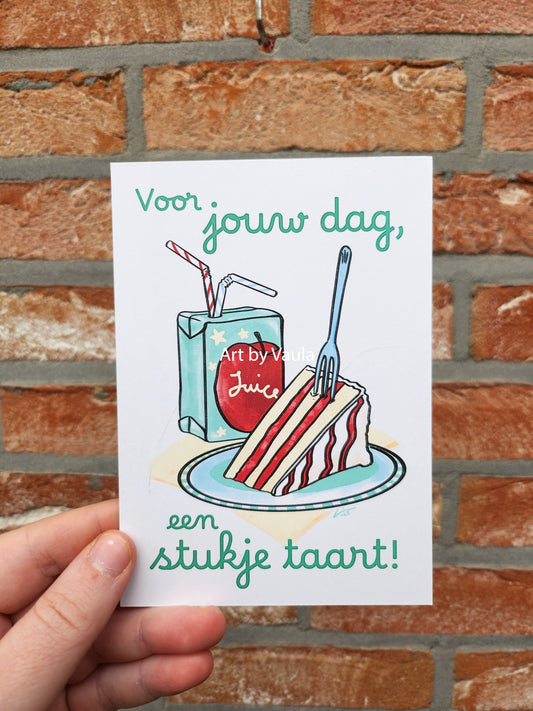 Voor
jouw dag,
Art by Vaula
Juice
een
stukje taart!